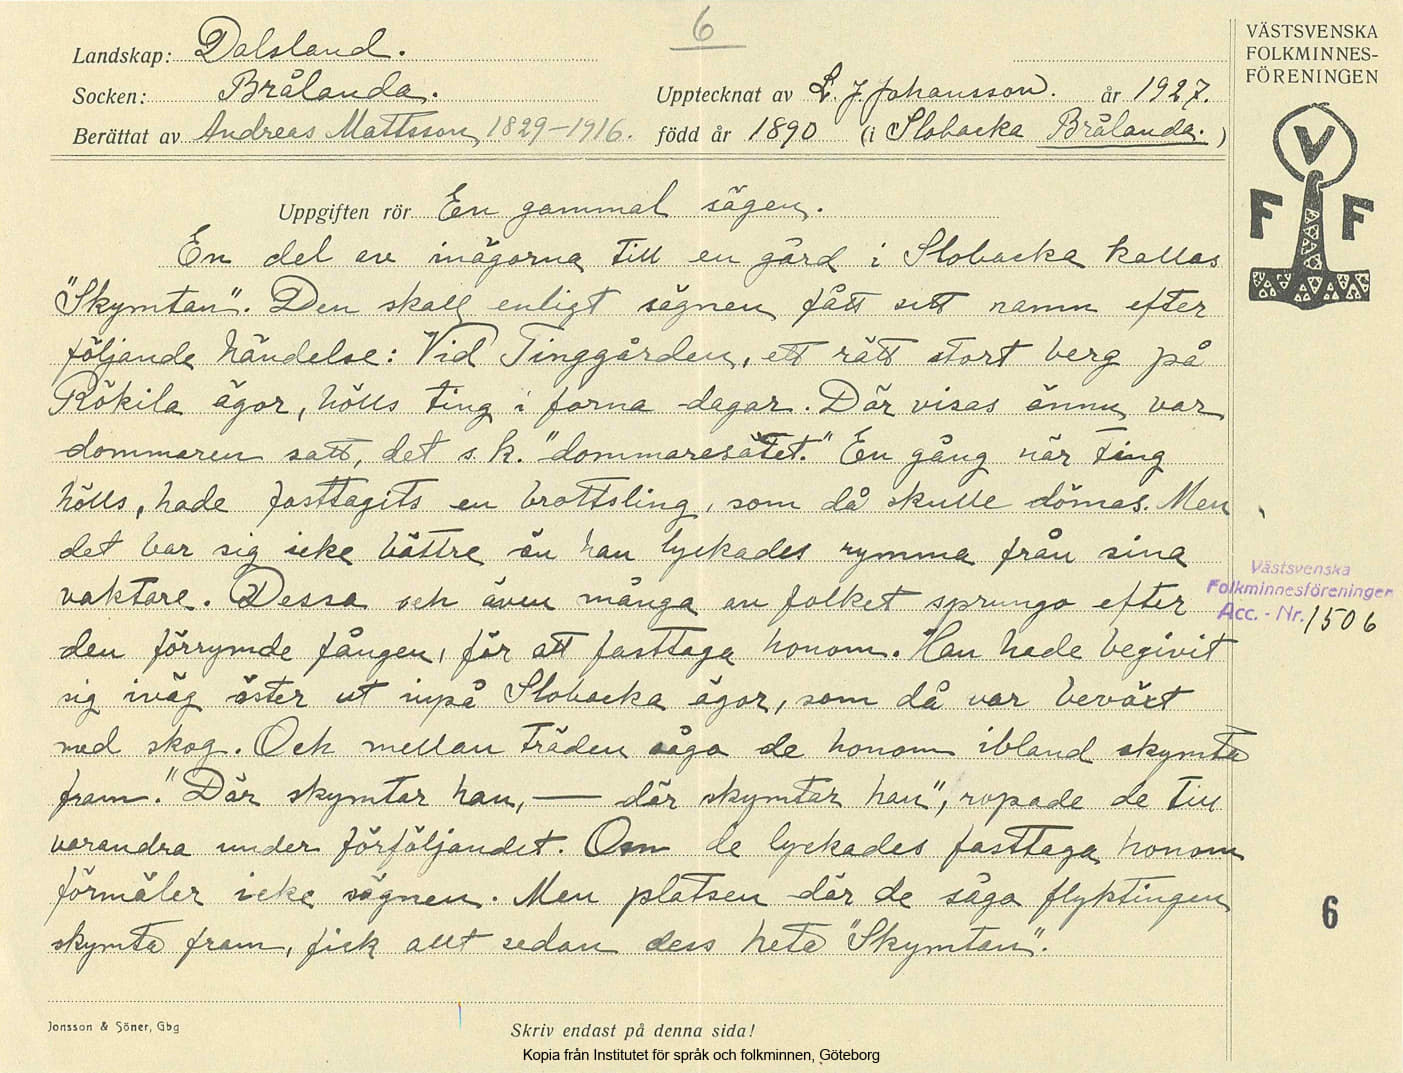 6
Landskap: Dalsland.
Socken: Brålanda.
Upptecknat av L. J. Johansson. år 1927.
Berättat av Andreas Mattsson, 1829-1916. född år 1890 (i Slobacka Brålanda.)
VÄSTSVENSKA
FOLKMINNES-
FÖRENINGEN
V
F F
Uppgiften rör En gammal sägen.
En del av inägorna till en gård i Slobacka kallas
"Skymtan". Den skall enligt sägnen fått sitt namn efter
följande händelse: Vid Tinggården, ett rätt stort berg på
Rökila ägor, hölls ting i forna dagar. Där visas ännu var
dommaren satt, det s.k. "dommaresätet." En gång när ting
hölls, hade fasttagits en brottsling, som då skulle dömas. Men
det bar sig icke bättre än han lyckades rymma från sina
vaktare. Dessa och även många av folket sprungo efter
den förrymde fången, för att fasttaga honom. Han hade begivit
sig iväg öster ut inpå Slobacka ägor, som då var beväxt
med skog. Och mellan träden sågo de honom ibland skymta
fram. "Där skymtar han, — där skymtar han", ropade de till
varandra under förföljandet. Om de lyckades fasttaga honom
förmäler icke sägnen. Men platsen där de sågo flyktingen
skymta fram, fick allt sedan dess heta "Skymtan".
Västsvenska
Folkminnesföreningen
Acc. - Nr. 1506
6
Jonsson & Söner, Gbg
Skriv endast på denna sida!
Kopia från Institutet för språk och folkminnen, Göteborg